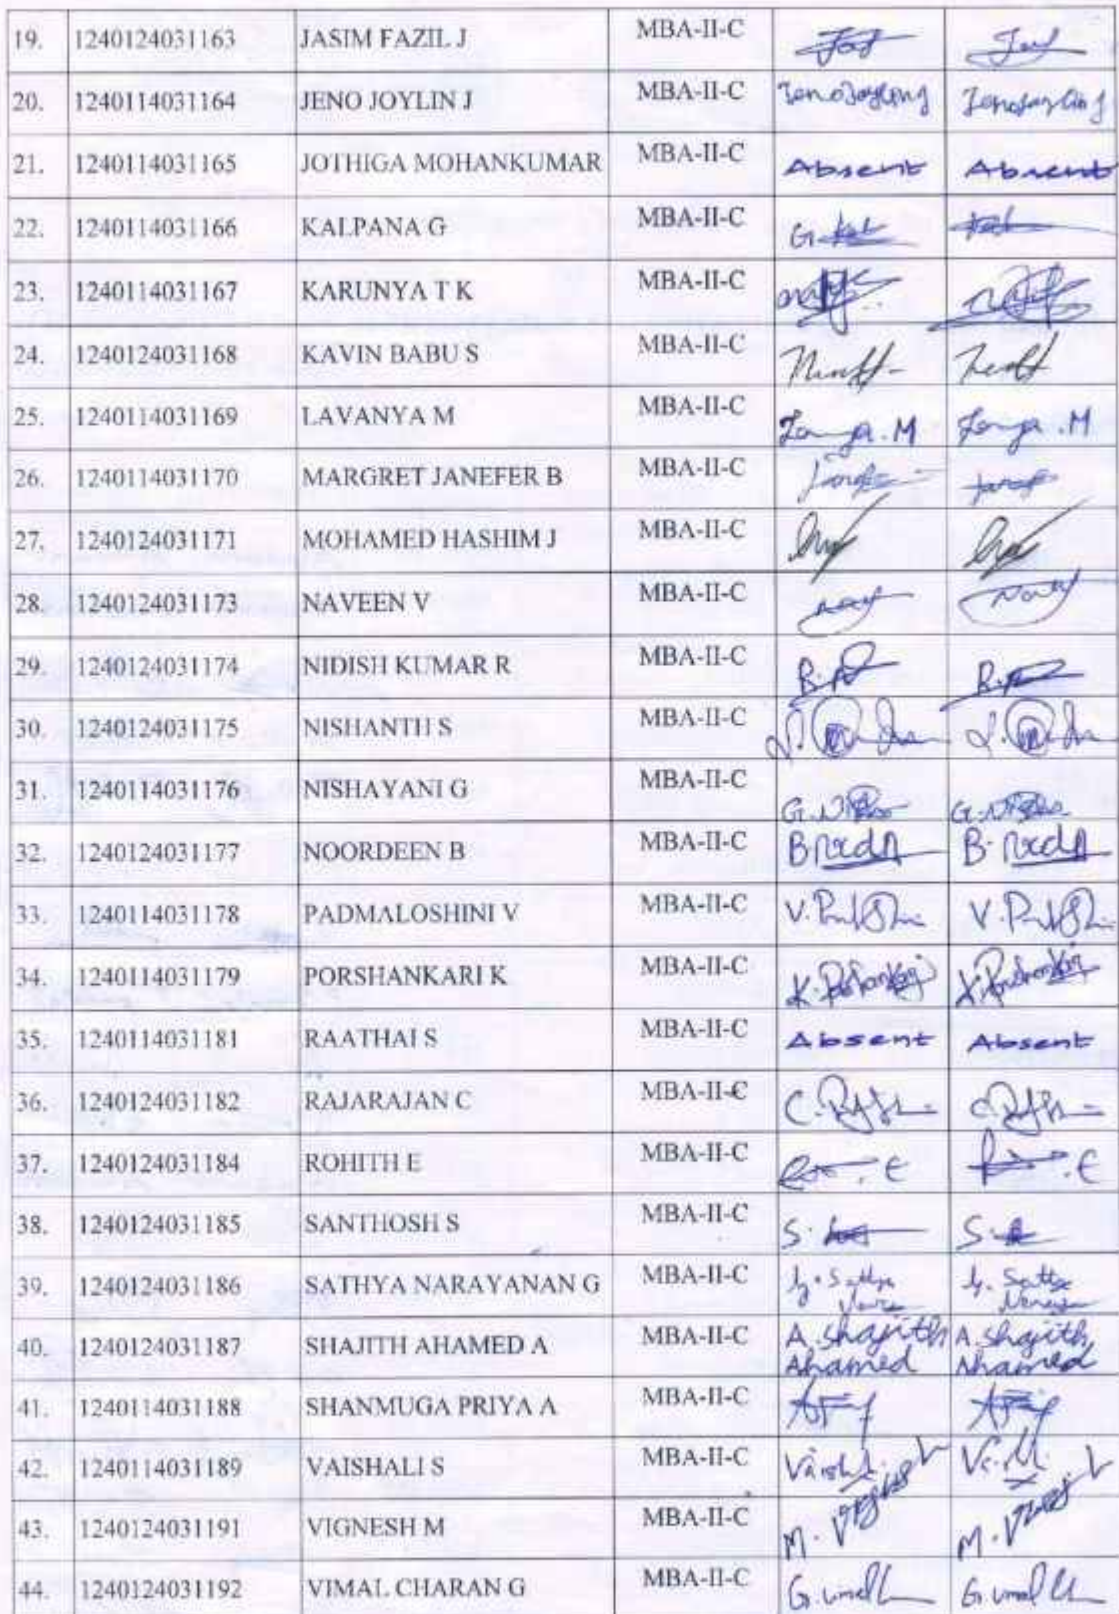 19. 1240124031163 JASIM FAZIL J MBA-II-C
20. 1240114031164 JENO JOYLIN J MBA-II-C
21. 1240114031165 JOTHIGA MOHANKUMAR MBA-II-C Absent Absent
22. 1240114031166 KALPANA G MBA-II-C
23. 1240114031167 KARUNYA T K MBA-II-C
24. 1240124031168 KAVIN BABU S MBA-II-C
25. 1240114031169 LAVANYA M MBA-II-C
26. 1240114031170 MARGRET JANEFER B MBA-II-C
27. 1240124031171 MOHAMED HASHIM J MBA-II-C
28. 1240124031173 NAVEEN V MBA-II-C
29. 1240124031174 NIDISH KUMAR R MBA-II-C
30. 1240124031175 NISHANTH S MBA-II-C
31. 1240114031176 NISHAYANI G MBA-II-C
32. 1240124031177 NOORDEEN B MBA-II-C
33. 1240114031178 PADMALOSHINI V MBA-II-C
34. 1240114031179 PORSHANKARI K MBA-II-C
35. 1240114031181 RAATHAI S MBA-II-C Absent Absent
36. 1240124031182 RAJARAJAN C MBA-II-C
37. 1240124031184 ROHITH E MBA-II-C
38. 1240124031185 SANTHOSH S MBA-II-C
39. 1240124031186 SATHYA NARAYANAN G MBA-II-C
40. 1240124031187 SHAJITH AHAMED A MBA-II-C A. Shajith Ahamed A. Shajith Ahamed
41. 1240114031188 SHANMUGA PRIYA A MBA-II-C
42. 1240114031189 VAISHALI S MBA-II-C
43. 1240124031191 VIGNESH M MBA-II-C
44. 1240124031192 VIMAL CHARAN G MBA-II-C